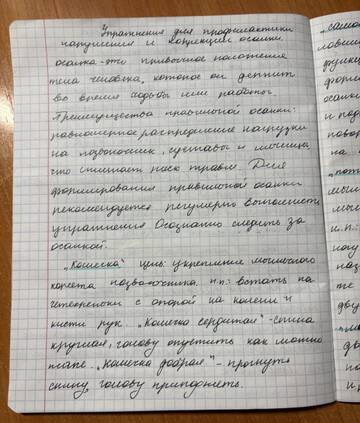 Упражнения для профилактики
нарушения и коррекции осанки
осанка - это привычное положение
тела человека, которое он держит
во время ходьбы или работы.
Преимущества правильной осанки:
равномерное распределение нагрузки
на позвоночник, суставы и мышцы,
что снижает риск травм. Для
формирования правильной осанки
рекомендуется регулярно выполнять
упражнения Осознанно следить за
осанкой.
"Кошечка" цель: укрепление мышечного
корсета позвоночника. и.п.: встать на
четвереньки с опорой на колени и
кисти рук. "Кошечка сердитая" - спина
круглая, голову опустить как можно
ниже. "Кошечка добрая" - прогнуть
спину, голову приподнять.